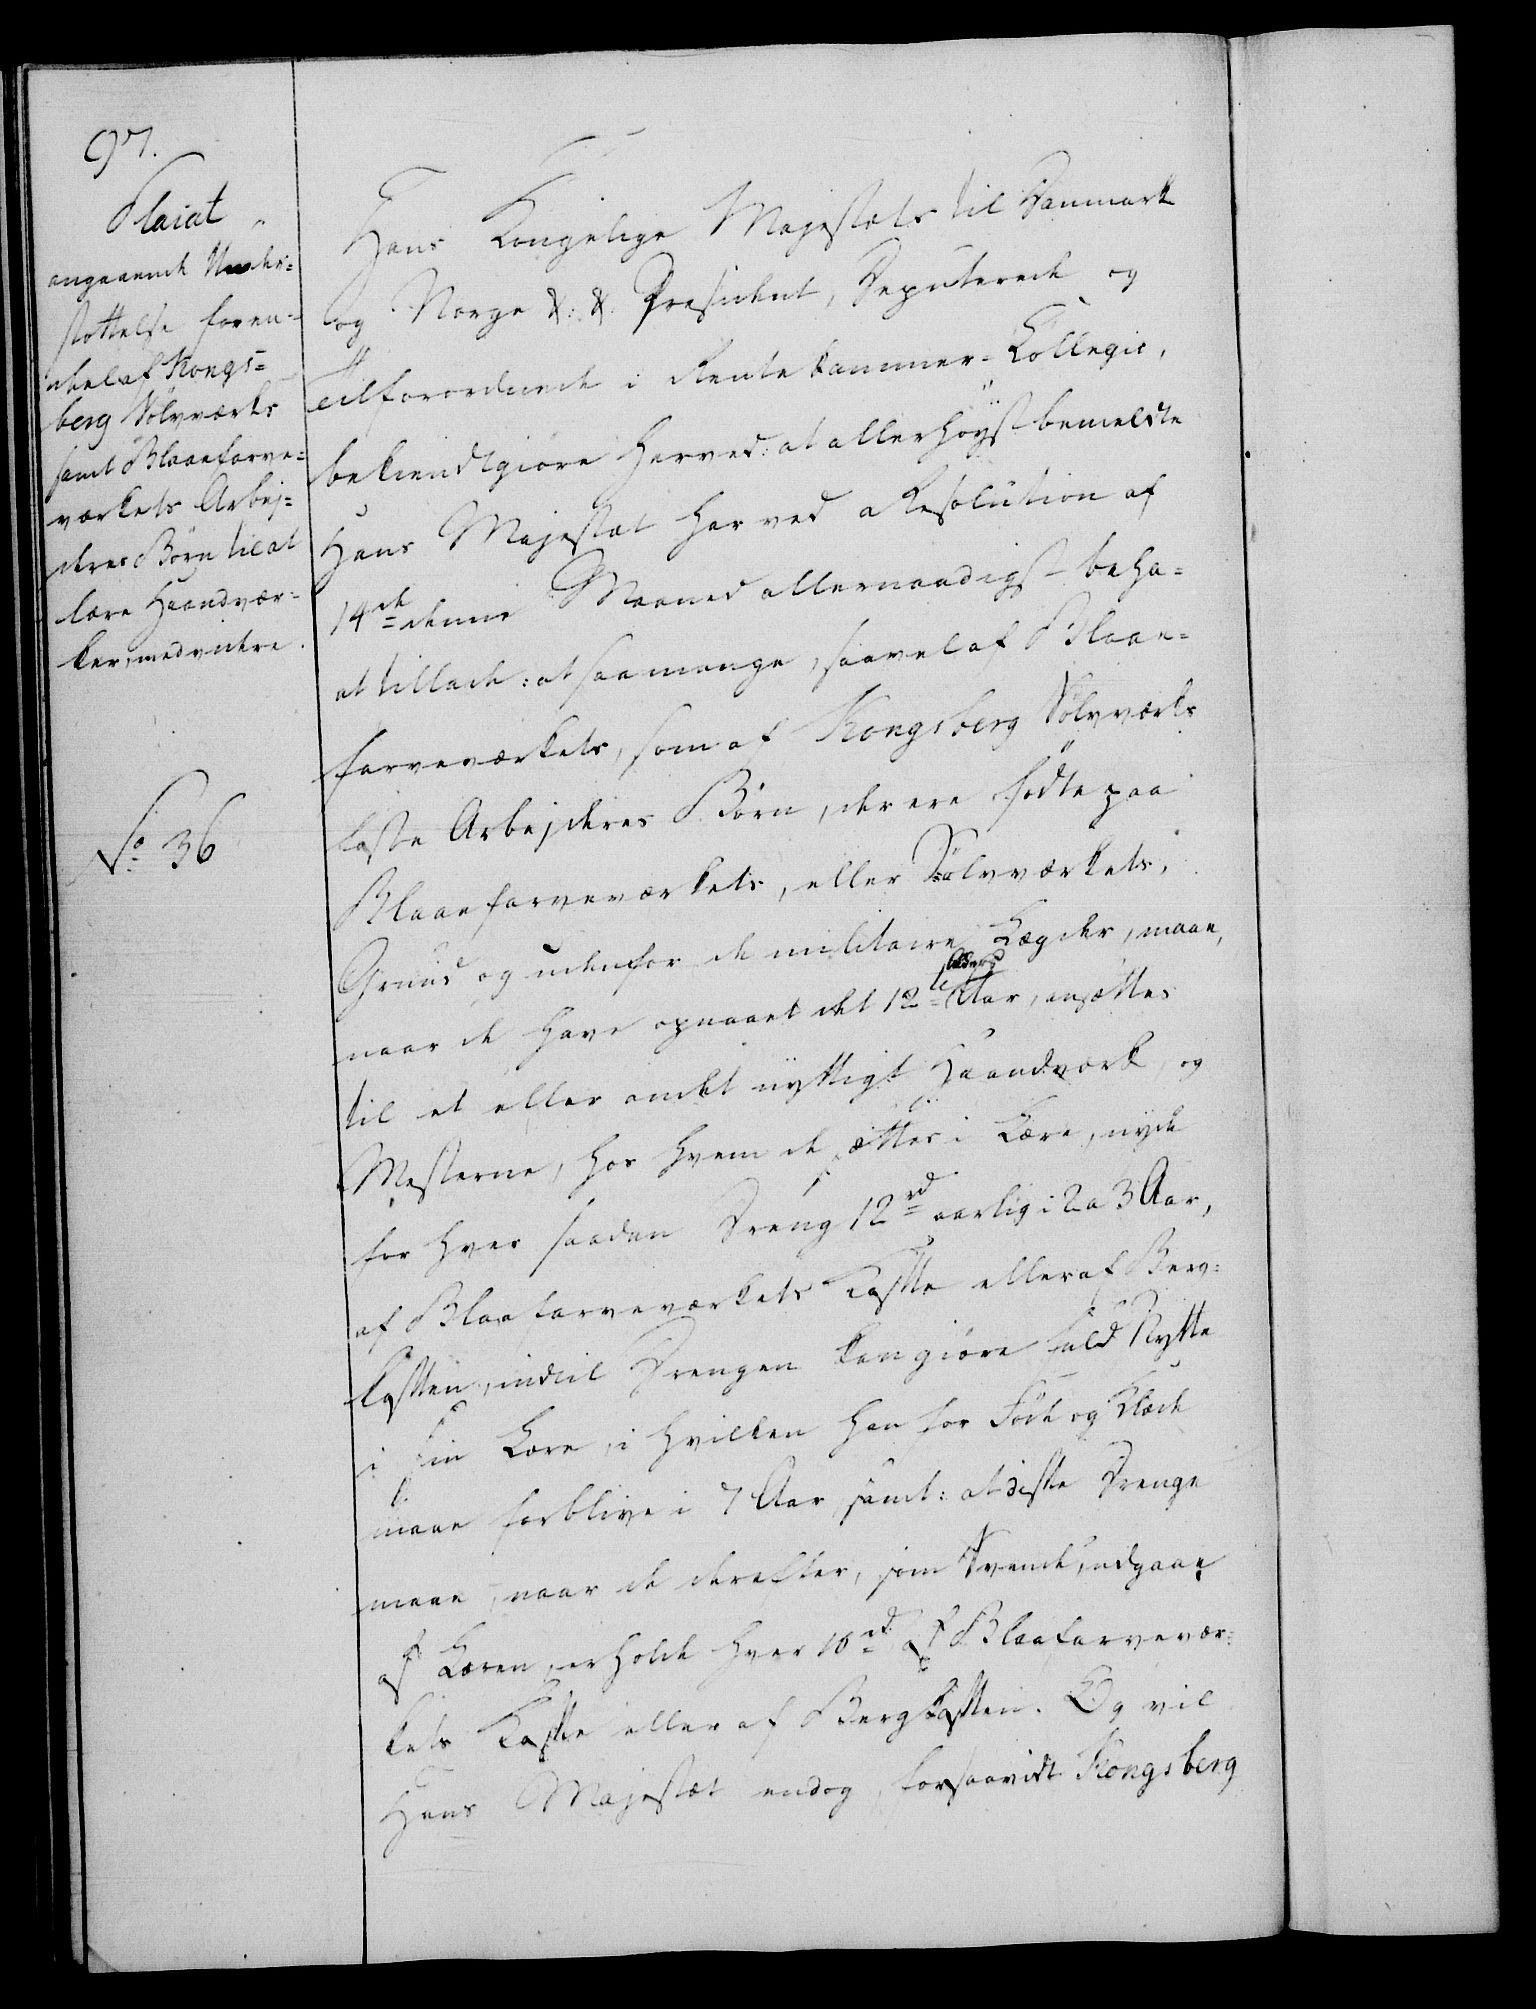 97.
Placat
angaaende Under=
støttelse foren=
del af Kongs=
berg Sølvværks
samt Blaafarve=
værkets Arbej=
deres Børn til at
lære Haandvær=
ker, med videre.
No. 36
Hans Kongelige Majestæts til Danmark
og Norge &: &: President, Deputerede og
Tilforordnede i Rentekammer-Collegio,
bekiendtgiøre herved: at allerhöyst bemeldte
Hans Majestæt har ved Resolution af
14de denne Maaned allernaadigst beha=
at tillade: at saamange, saavel af Blaae=
farveværkets, som af Kongsberg Sölvværks
faste Arbejderes Börn, der ere fødte paa
Blaaefarveværkets, eller Sölvværkets,
Grund og udenfor de militaire Lægder, maae,
naar de have opnaaet det 12te Alders Aar, ansættes
til et eller andet nyttigt Haandværk, og
Mesterne, hos hvem de sættes i Lære, nyde
for hver saadan Dreng 12rd aarlig i 2 a 3 Aar,
af Blaafarveværkets Casse eller af Berg=
kassen, indtil Drengen kan giøre fuld Nytte
i sin Lære, i hvilken han for Föde og Klæde
maae forblive i 7 Aar, samt: at disse Drenge
maae, naar de derefter, som Svende, udgaae
af Læren, erholde hver 10rd af Blaafarvevær=
kets Casse eller af Bergkassen. Og vil
Hans Majestæt endog, forsaavidt Kongsberg